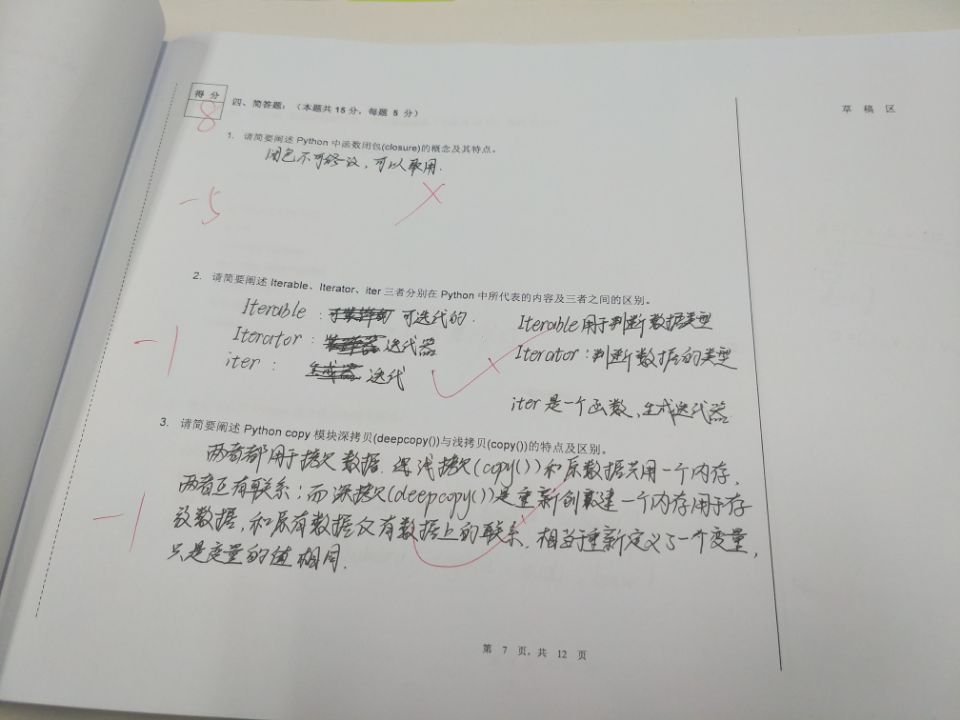 得 分
8
四、简答题：（本题共 15 分，每题 5 分）
草 稿 区
1. 请简要阐述 Python 中函数闭包(closure)的概念及其特点。
闭包不可修改，可以取用.
-5
2. 请简要阐述 Iterable、Iterator、iter 三者分别在 Python 中所代表的内容及三者之间的区别。
Iterable : 可迭代的. Iterable 用于判断数据类型
Iterator : 迭代器 Iterator : 判断数据的类型
-1
iter : 生成器 迭代
iter 是一个函数, 生成迭代器
3. 请简要阐述 Python copy 模块深拷贝(deepcopy())与浅拷贝(copy())的特点及区别。
两者都用于拷贝数据. 浅拷贝(copy())和原数据共用一个内存,
两者互有联系; 而深拷贝(deepcopy())是重新创建一个内存用于存
-1
放数据, 和原有数据仅有数据上的联系. 相当于重新定义了一个变量,
只是变量的值相同.
第 7 页，共 12 页